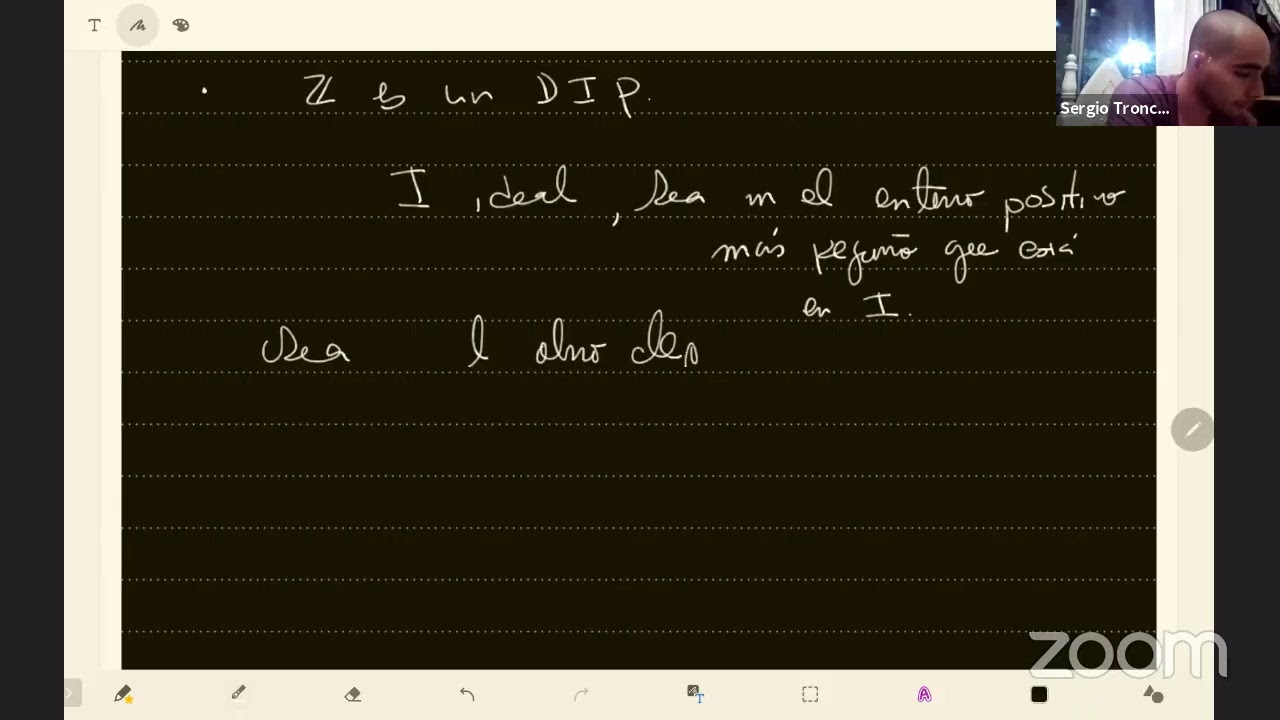 T
Sergio Tronc...
· ℤ es un DIP.
I ideal, sea m el entero positivo
más pequeño que está
en I.
Sea l otro
zoom